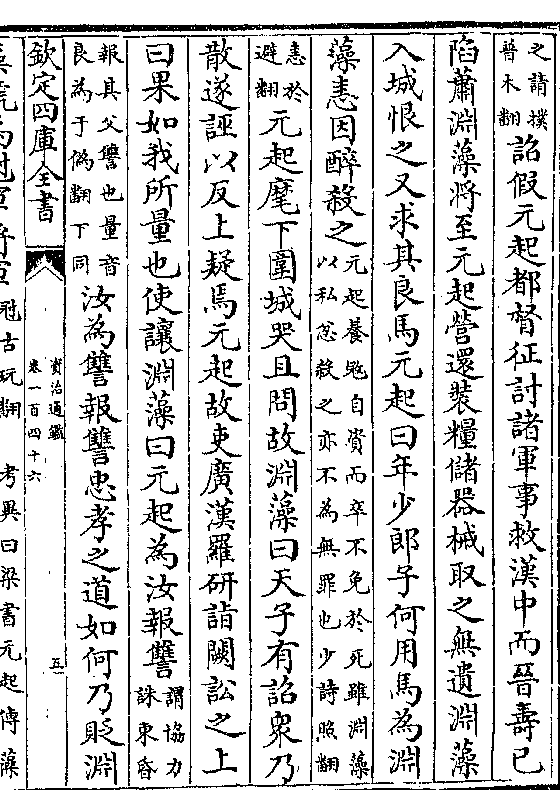 之請撲
普木翻
詔假元起都督征討諸軍事救漢中而晉壽已
陷蕭淵藻將至元起營還裝糧儲器械取之無遺淵藻
入城恨之又求其良馬元起曰年少郎子何用馬為淵
藻恚因醉殺之
元起養寇自資而卒不免於死雖淵藻
以私忿殺之亦不為無罪也少詩照翻
恚於
避翻
元起麾下圍城哭且問故淵藻曰天子有詔衆乃
散遂誣以反上疑焉元起故吏廣漢羅研詣闕訟之上
曰果如我所量也使讓淵藻曰元起為汝報讐
謂協力
誅東昏
報其父讐也量音
良為于偽翻下同
汝為讐報讐忠孝之道如何乃貶淵
欽定四庫全書
資治通鑑
卷一百四十六
五
藻號為冠軍將軍
冠古玩翻
考異曰梁書元起傳藻